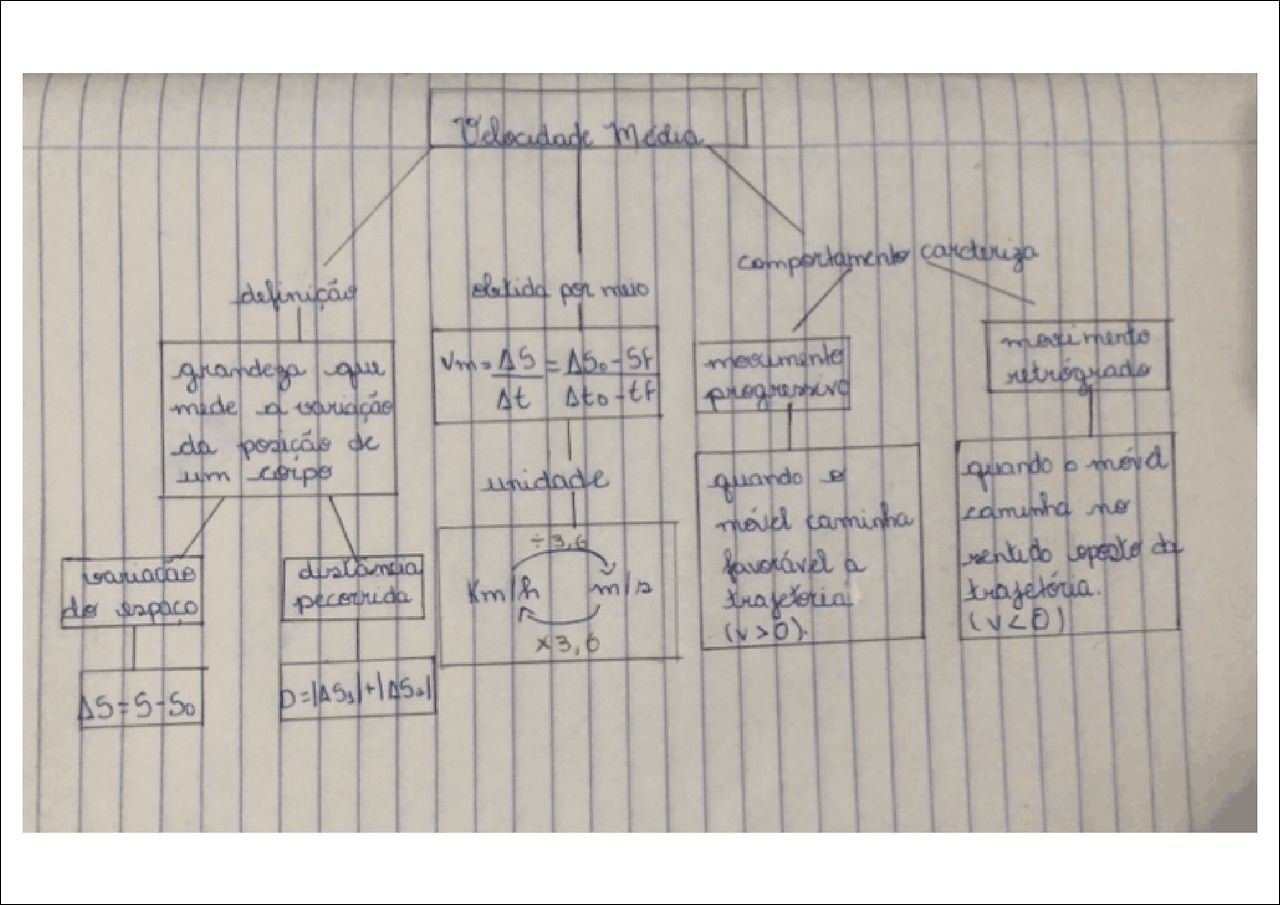 Velocidade Média
definição
grandeza que
mede a variação
da posição de
um corpo
variação
do espaço
ΔS = S - S₀
distância
pecorrida
D = |ΔS₁| + |ΔS₂|
obtida por meio
Vm = ΔS/Δt = ΔS₀ - Sf/Δt₀ - tf
unidade
÷ 3,6
Km/h m/s
x 3,6
comportamento carcteriza
movimento
progressivo
quando o
móvel caminha
favorável a
trajetória
(v > 0).
movimento
retrógrado
quando o móvel
caminha no
sentido oposto da
trajetória.
(v < 0)